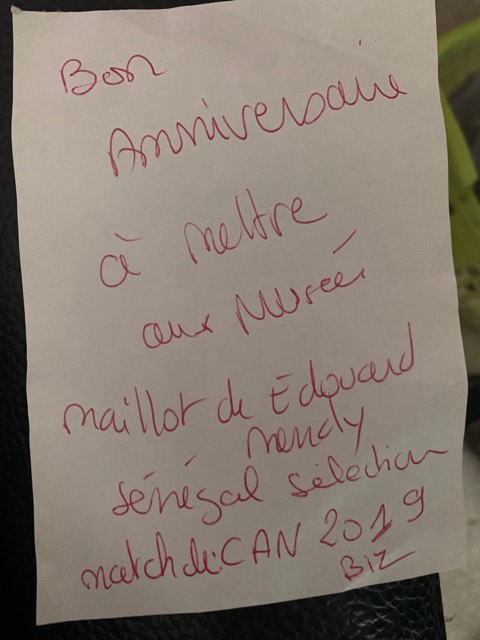 Bon
Anniversaire
à mettre
aux Musée
maillot de Edouard
mendy
Sénégal sélection
match de: CAN 2019
BIZ